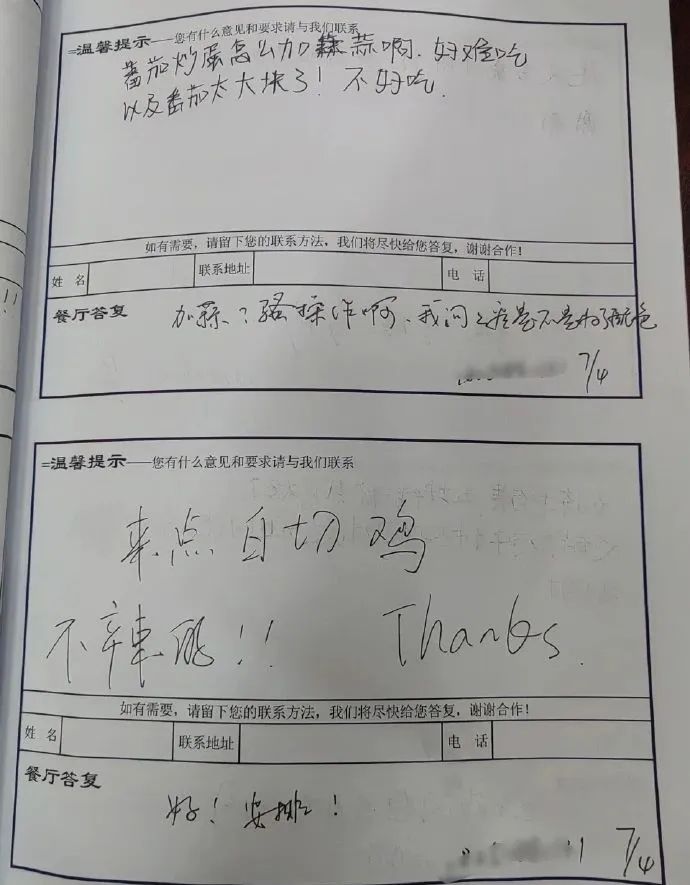 =温馨提示——您有什么意见和要求请与我们联系
番茄炒蛋怎么加蒜啊.好难吃
以及番茄太大块了！不好吃.
如有需要，请留下您的联系方法，我们将尽快给您答复，谢谢合作！
姓 名 联系地址 电 话
餐厅答复 加蒜？骚操作啊、我问之后是不是为了
7/4
=温馨提示——您有什么意见和要求请与我们联系
来点白切鸡
不辣的!! Thanks.
如有需要，请留下您的联系方法，我们将尽快给您答复，谢谢合作！
姓 名 联系地址 电 话
餐厅答复
好！安排！
7/4